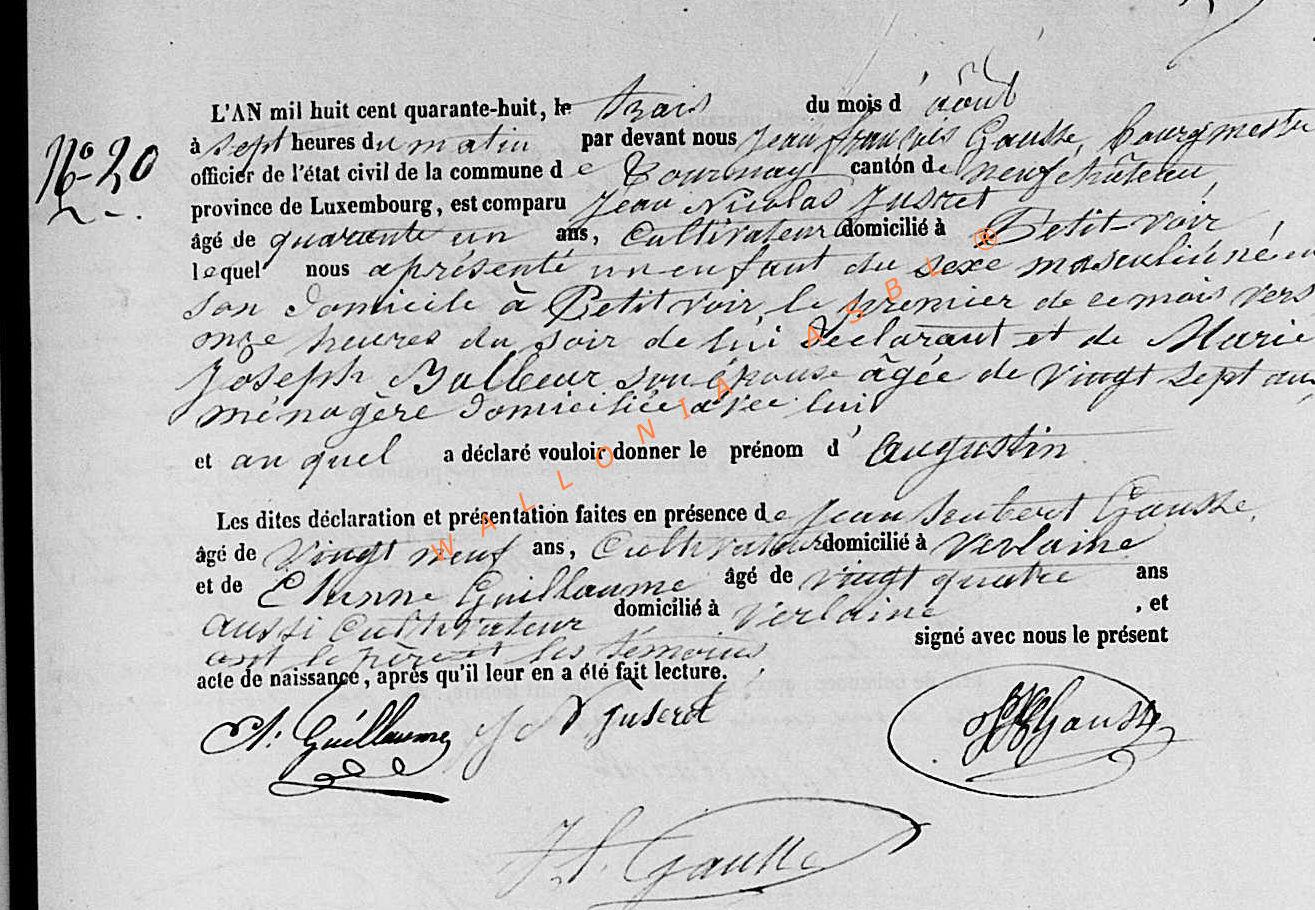 L'AN mil huit cent quarante-huit, le trois du mois d'août
N° 20
à sept heures du matin par devant nous Jean françois Gausse, bourgmestre
officier de l'état civil de la commune de Tournay canton de neufchâteau,
province de Luxembourg, est comparu Jean Nicolas Juseret
âgé de quarante un ans, Cultivateur domicilié à Petit-voir,
lequel nous a présenté un enfant du sexe masculin, né en
son domicile à Petitvoir, le premier de ce mois vers
onze heures du soir de lui déclarant et de Marie
Joseph Balleur son épouse âgée de vingt sept ans,
ménagère domiciliée avec lui
et auquel a déclaré vouloir donner le prénom d'Augustin
Les dites déclaration et présentation faites en présence de Jean Gausse,
âgé de vingt neuf ans, Cultivateur domicilié à Verlaine
et de Etienne Guillaume âgé de vingt quatre ans
aussi Cultivateur domicilié à Verlaine, et
ont le père et les témoins signé avec nous le présent
acte de naissance, après qu'il leur en a été fait lecture.
Guillaume J N Juseret Gausse
Gausse
WALLONIA ASBL ®